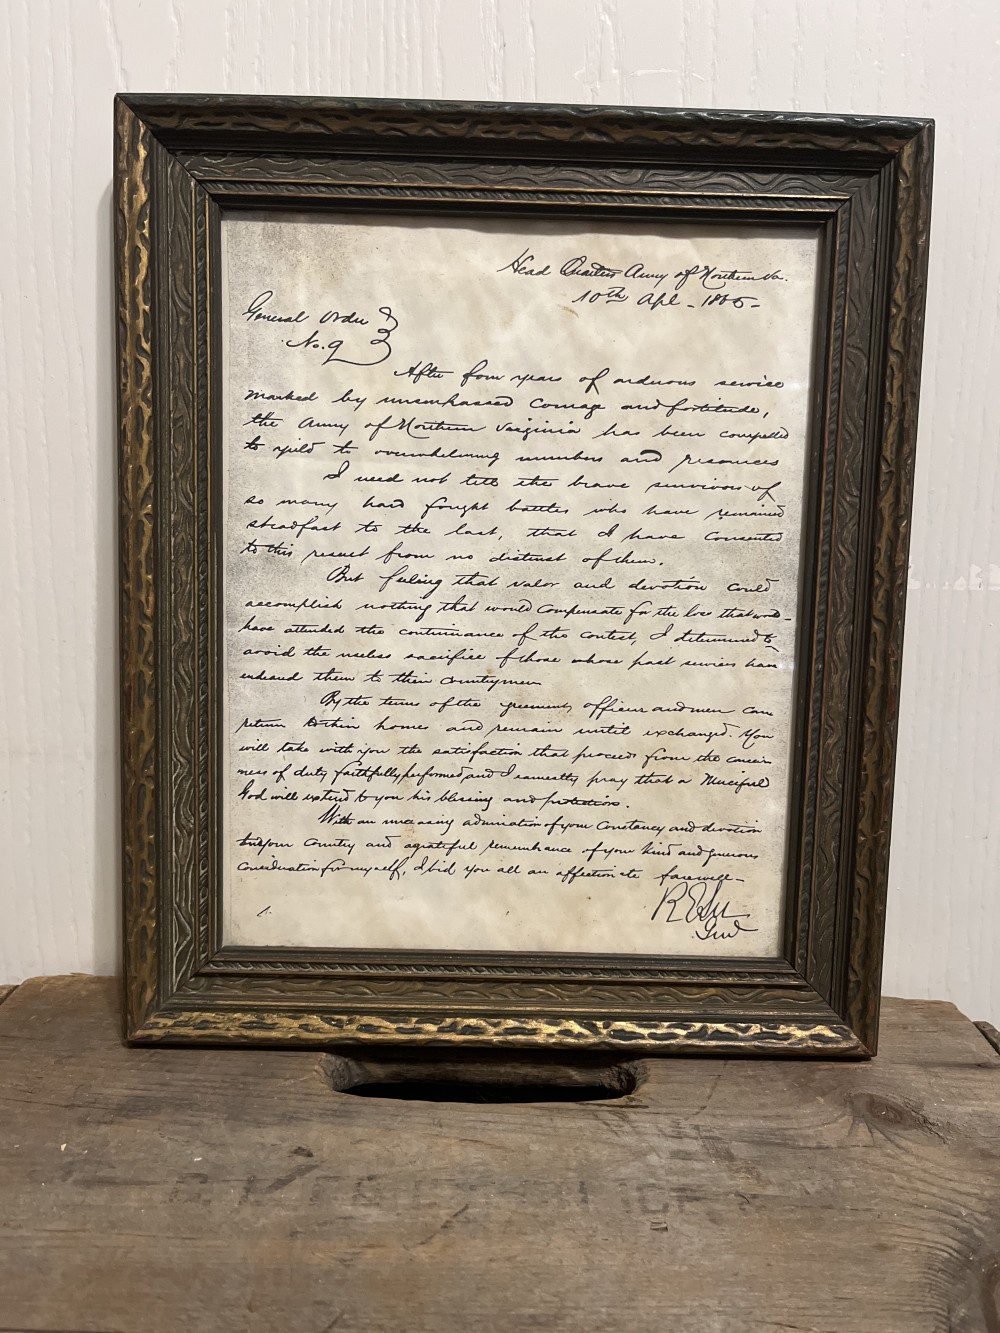 Head Quarters Army of Northern Va.
10th Apl - 1865 -
General Order
No. 9
After four years of arduous service
marked by unsurpassed courage and fortitude,
the Army of Northern Virginia has been compelled
to yield to overwhelming numbers and resources
I need not tell the brave survivors of
so many hard fought battles who have remained
steadfast to the last, that I have consented
to this result from no distrust of them.
But feeling that valor and devotion could
accomplish nothing that would compensate for the loss that would
have attended the continuance of the contest, I determined to
avoid the useless sacrifice of those whose past services have
endeared them to their countrymen
By the terms of the agreement, officers and men can
return to their homes and remain until exchanged. You
will take with you the satisfaction that proceeds from the conscious
ness of duty faithfully performed, and I earnestly pray that a Merciful
God will extend to you his blessing and protection.
With an unceasing admiration of your Constancy and devotion
to your Country and a grateful remembrance of your kind and generous
consideration for myself, I bid you all an affectionate farewell -
R E Lee
Genl